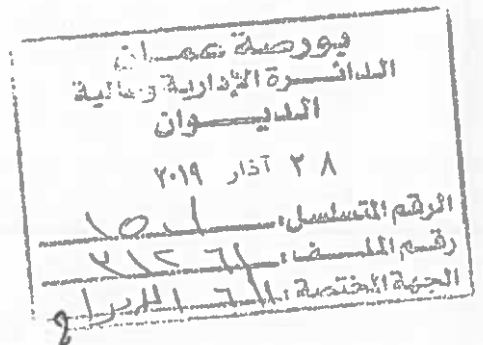 بورصة عمان
الدائرة الإدارية والمالية
الديوان
٢٨ آذار ٢٠١٩
الرقم المتسلسل: ١٥٠١
رقم الملف:
الجهة المختصة: